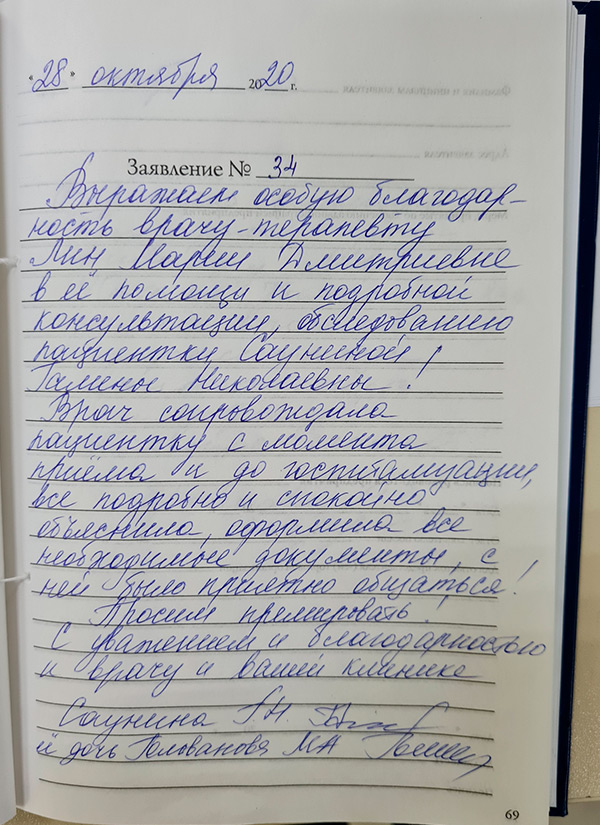 "28" октября 2020 г.
Заявление № 34
Выражаем особую благодар-
ность врачу-терапевту
Лин Марии Дмитриевне
в её помощи и подробной
консультации, обследованию
пациентку Сауниной
Галины Николаевны!
Врач сопровождала
пациентку с момента
приёма и до госпитализации,
все подробно и спокойно
объяснила, оформила все
необходимые документы, с
ней было приятно общаться!
Просим премировать!
С уважением и благодарностью
к врачу и вашей клинике
Саунина Г.Н.
и дочь Голованова МА
69